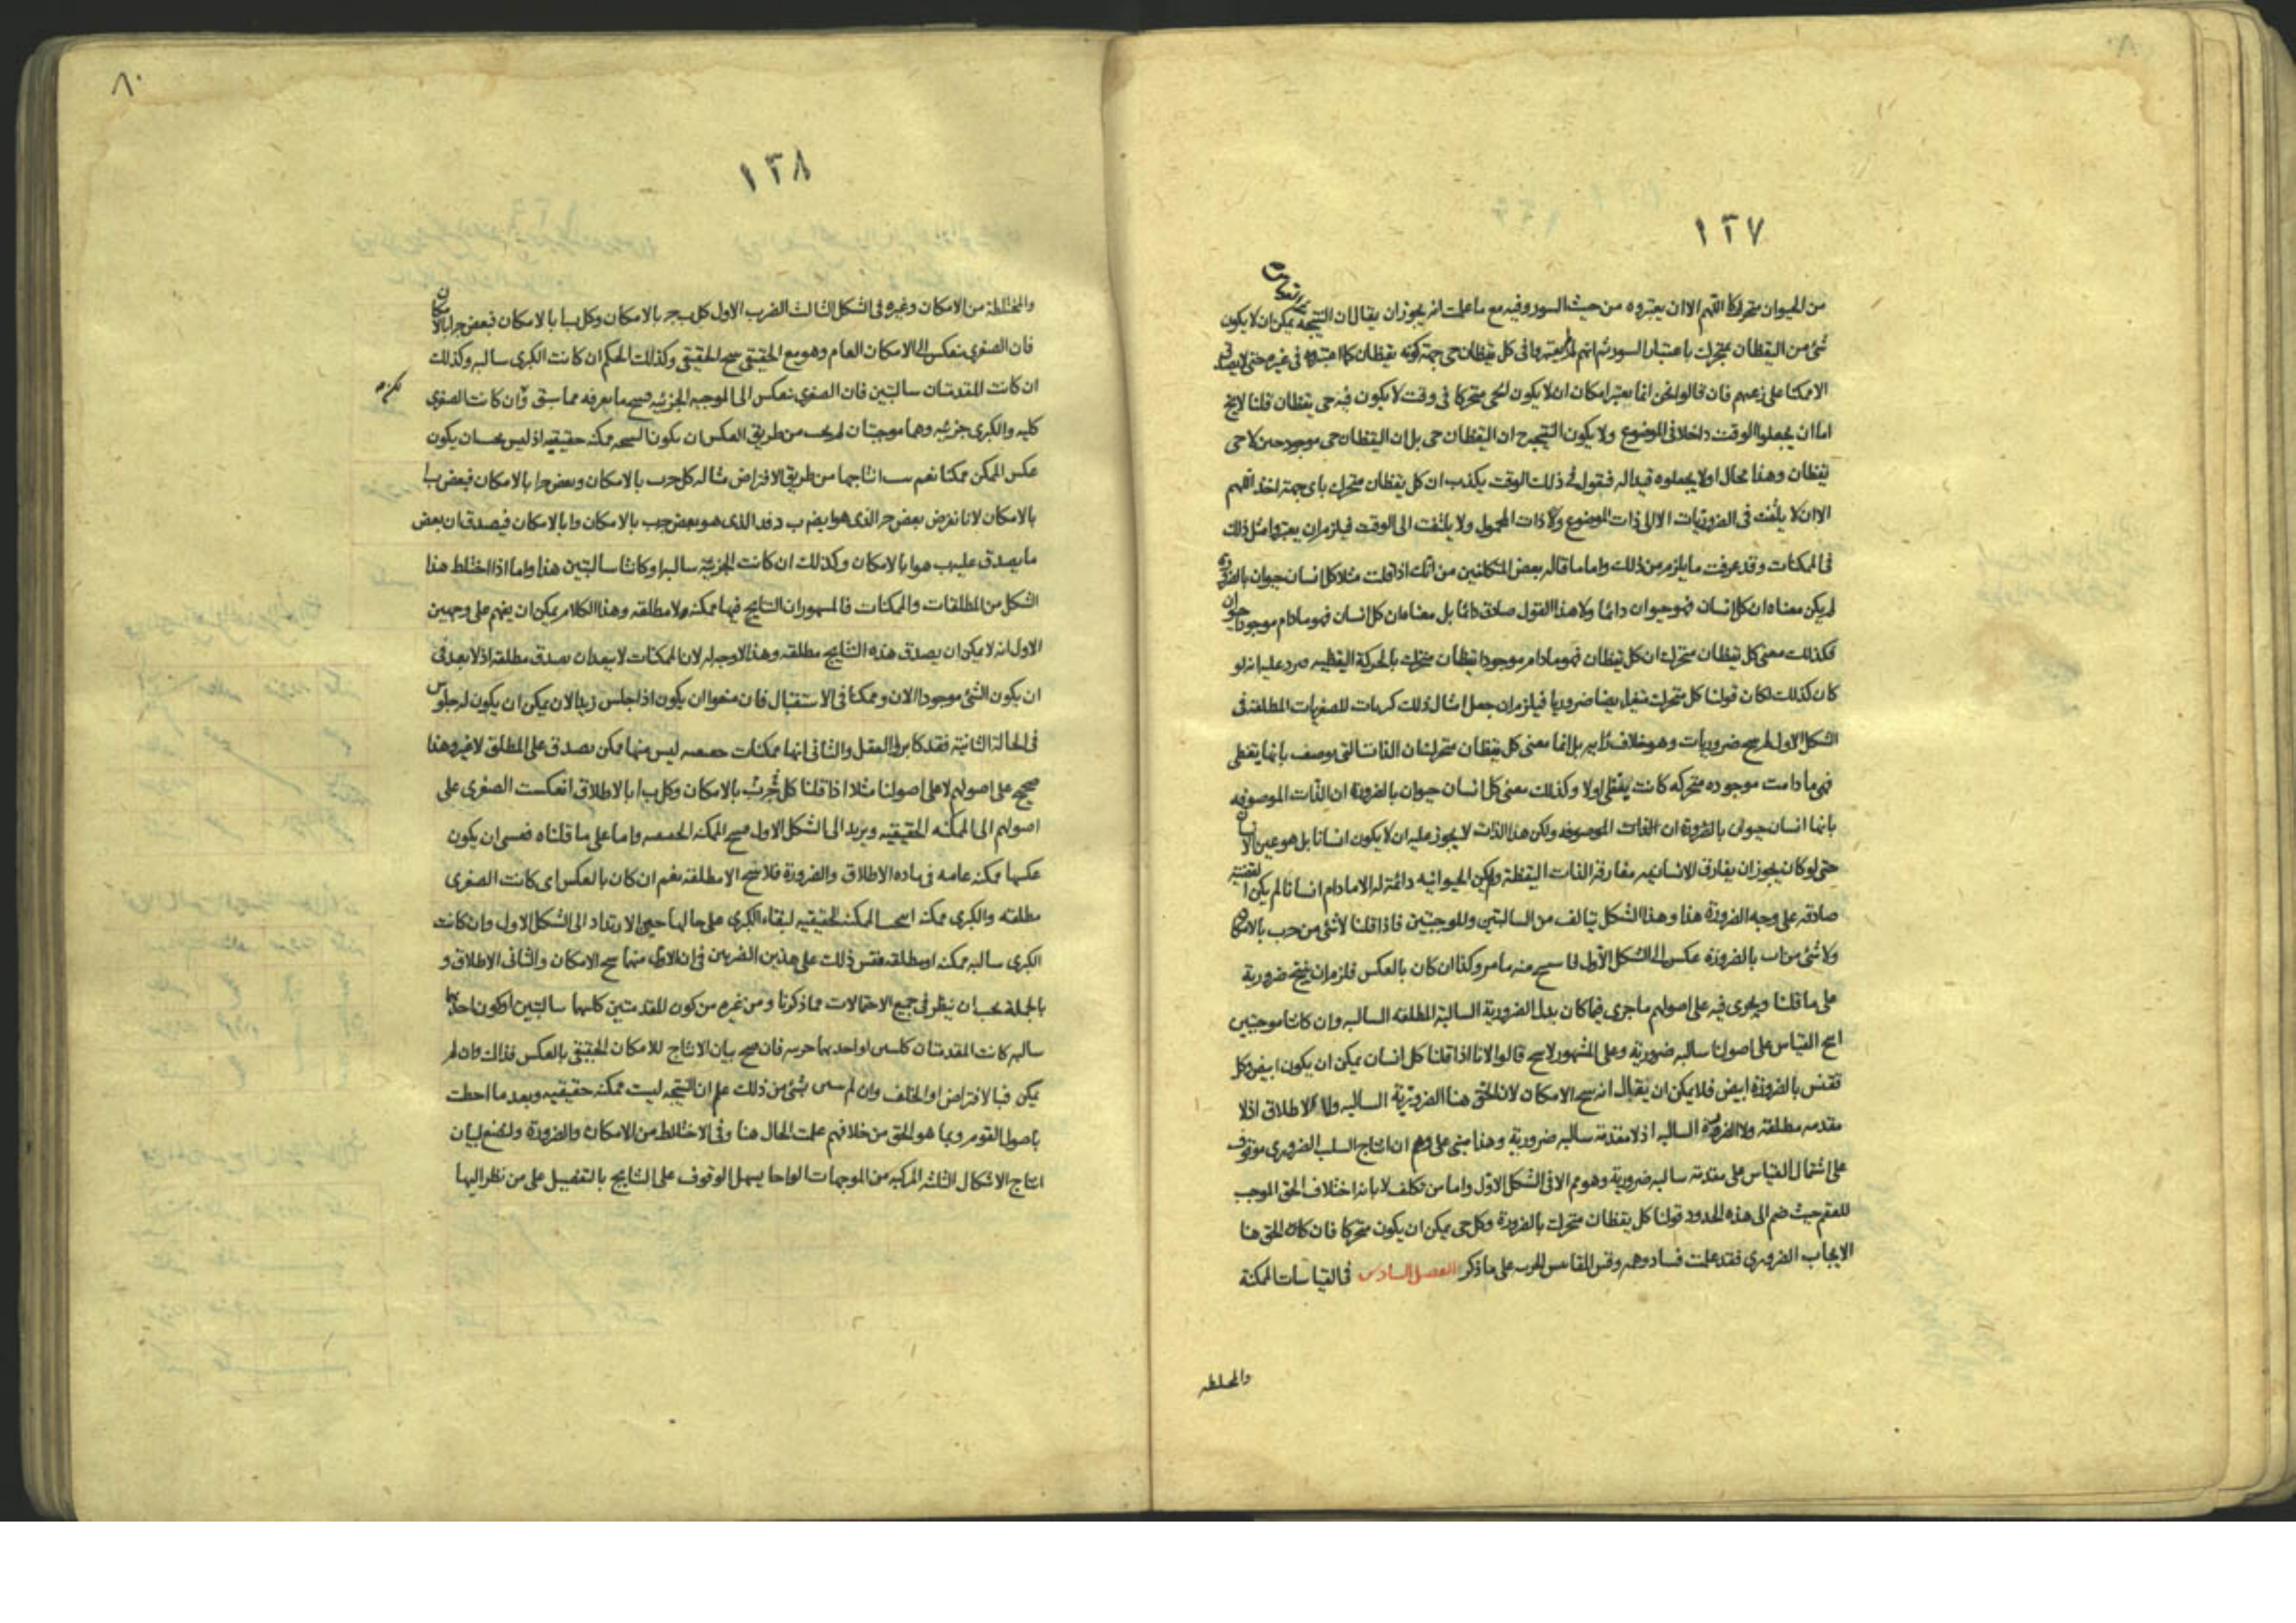 ١٢٧
من الحيوان متحركا اللهم الا ان يعتبروه من حيث السور وفيه مع ما علمت انه يجوز ان يقال ان النتيجة يمكن ان لا يكون
شئ من اليقظان بمتحرك باعتبار السور ثم انهم لم يعتبروا فى كل يقظان حى جهة كونه يقظان كما اعتبروه فى غيره حتى لا يصدق
الا ممكنا على زعمهم فان قالوا نحن انما نعتبر امكان ان لا يكون الحى متحركا فى وقت لا يكون فيه حى يقظان قلنا لا يخ
اما ان يجعلوا الوقت داخلا فى الموضوع ولا يكون النتيجة ح ان اليقظان حى بل ان اليقظان حى موجود حين لا حى
يقظان وهذا محال او لا يجعلوه قيدا له فنقول فى ذلك الوقت يكذب ان كل يقظان متحرك باى جهة اخذ اللهم
الا ان لا يلتفت فى الضروريات الا الى ذات الموضوع وذات المحمول ولا يلتفت الى الوقت فيلزم ان يعتبروا مثل ذلك
فى الممكنات وقد عرفت ما يلزم من ذلك واما ما قاله بعض المتكلفين من انك اذا قلت مثلا كل انسان حيوان بالضرورة
لم يكن معناه ان كل انسان فهو حيوان دائما ولا هذا القول صادق دائما بل معناه ان كل انسان فهو ما دام موجودا حيوان
فكذلك معنى كل يقظان متحرك ان كل يقظان فهو ما دام موجودا يقظان متحرك بالحركة اليقظيه فيرد عليه انه لو
كان كذلك لكان قولنا كل متحرك متغير ايضا ضروريا فيلزم ان جعل امثال ذلك كبريات للصغريات المطلقة فى
الشكل الاول انتج ضروريات وهو خلاف رأيه بل انما معنى كل يقظان متحرك ان الذات التى يوصف بانها يقظى
فهى ما دامت موجوده متحركه كانت يقظى او لا وكذلك معنى كل انسان حيوان بالضرورة ان الذات الموصوفه
بانها انسان حيوان بالضرورة ان الذات الموصوفه ولكن هذا الذات لا يجوز عليه ان لا يكون انسانا بل هو عين الانسان
حتى لو كان يجوز ان يفارق الانسانيه مفارقة الذات اليقظة ولم يكن الحيوانيه دائمة له الا ما دام انسانا لم يكن القضية
صادقه على وجه الضرورة هذا وهذا الشكل يتالف من السالبتين والموجبتين فاذا قلنا لا شئ من حـ ب بالامكان
ولا شئ من ا ب بالضرورة عكس الى الشكل الاول فانتج منه ما مر وكذا ان كان بالعكس فلزم ان ينتج ضرورية
على ما قلنا ويجرى فيه على اصولهم ما جرى فيما كان بدل الضرورية السالبة المطلقه السالبه وان كانتا موجبتين
انتج القياس على اصولنا سالبه ضرورية وعلى المشهور لا ينتج قالوا لانا اذا قلنا كل انسان يمكن ان يكون ابيض وكل
ققنس بالضرورة ابيض فلا يمكن ان يقال انه ينتج الامكان لان الحق هنا الضرورية السالبه ولا الاطلاق اذ لا
مقدمه مطلقة ولا الضرورة السالبه اذ لا مقدمة سالبه ضرورية وهذا مبنى على وهم ان انتاج السلب الضرورى موقوف
على اشتمال القياس على مقدمة سالبه ضرورية وهو مم الا فى الشكل الاول واما من تكلف لابانة اختلاف الحق الموجب
للعقم حيث ضم الى هذه الحدود قولنا كل يقظان متحرك بالضرورة وكل حى يمكن ان يكون متحركا فان كان الحق هنا
الايجاب الضرورى فقد علمت فساد وهمه وقس المقاييس الجزئيه على ما ذكر الفصل السادس فى القياسات الممكنة
والمختلطه
٨٠
١٢٨
والمختلطة من الامكان وغيره فى الشكل الثالث الضرب الاول كل ب جـ بالامكان وكل ب ا بالامكان فبعض جـ ا بالامكان
فان الصغرى ينعكس الى الامكان العام وهو مع الحقيقى ينتج الحقيقى وكذلك الحكم ان كانت الكبرى سالبه وكذلك
ان كانت المقدمتان سالبتين فان الصغرى ينعكس الى الموجبه الجزئيه فينتج ما يعرفه مما سبق وان كانت الصغرى
كليه والكبرى جزئيه وهما موجبتان لم يجب من طريق العكس ان يكون النتيجه ممكنه حقيقيه اذ ليس يجب ان يكون
عكس الممكن ممكنا نعم انتاجها من طريق الافتراض مثاله كل جـ ب بالامكان وبعض جـ ا بالامكان فبعض ب ا
بالامكان لانا نفرض بعض جـ الذى هو ا د فد الذى هو بعض جـ ب بالامكان و ا بالامكان فيصدق ان بعض
ما يصدق عليه ب هو ا بالامكان وكذلك ان كانت الجزئيه سالبه او كانتا سالبتين هذا واما اذا اختلط هذا
الشكل من المطلقات والممكنات فالمشهور ان النتايج فيها ممكنه لا مطلقه وهذا الكلام يمكن ان يفهم على وجهين
الاول انه لا يمكن ان يصدق هذه النتايج مطلقه وهذا لا وجه له لان الممكنات لا يبعد ان يصدق مطلقه اذ لا بعد فى
ان يكون الشئ موجودا الان وممكنا فى الاستقبال فان منعوا ان يكون اذا جلس زيد الان يمكن ان يكون له جلوس
فى الحالة الثانية فقد كابروا العقل والثانى انها ممكنات حقيقيه ليس منها ممكن يصدق على المطلق لا غير وهذا
صحيح على اصولهم لا على اصولنا مثلا اذا قلنا كل ب جـ بالامكان وكل ب ا بالاطلاق انعكست الصغرى على
اصولهم الى الممكنه الحقيقيه ويرتد الى الشكل الاول فينتج الممكنه الحقيقيه واما على ما قلناه فعسى ان يكون
عكسها ممكنه عامه فى ماده الاطلاق والضرورة فلا ينتج الا مطلقه نعم ان كان بالعكس اى كانت الصغرى
مطلقه والكبرى ممكنه انتجت الممكنه الحقيقيه لبقاء الكبرى على حالها حين الارتداد الى الشكل الاول وان كانت
الكبرى سالبه ممكنه او مطلقه فقس ذلك على هذين الضربين فان الاول منهما ينتج الامكان والثانى الاطلاق و
بالجملة يجب ان ينظر فى جميع الاحتمالات مما ذكرنا ومن غيره من كون المقدمتين كلتيهما سالبتين او كون احديهما
سالبه كانت المقدمتان كليتين او احديهما جزئيه فان صح بيان الانتاج للامكان الحقيقى بالعكس فذاك وان لم
يمكن فبالافتراض او الخلف وان لم بشئ من ذلك علم ان النتيجه ليست ممكنه حقيقيه وبعد ما احطت
باصول القوم وبما هو الحق من خلافهم علمت الحال هنا وفى الاختلاط من الامكان والضرورة ولنضع لبيان
انتاج الاشكال الثلثه المركبه من الموجهات الواحا يسهل الوقوف على النتايج بالتفصيل على من نظر اليها